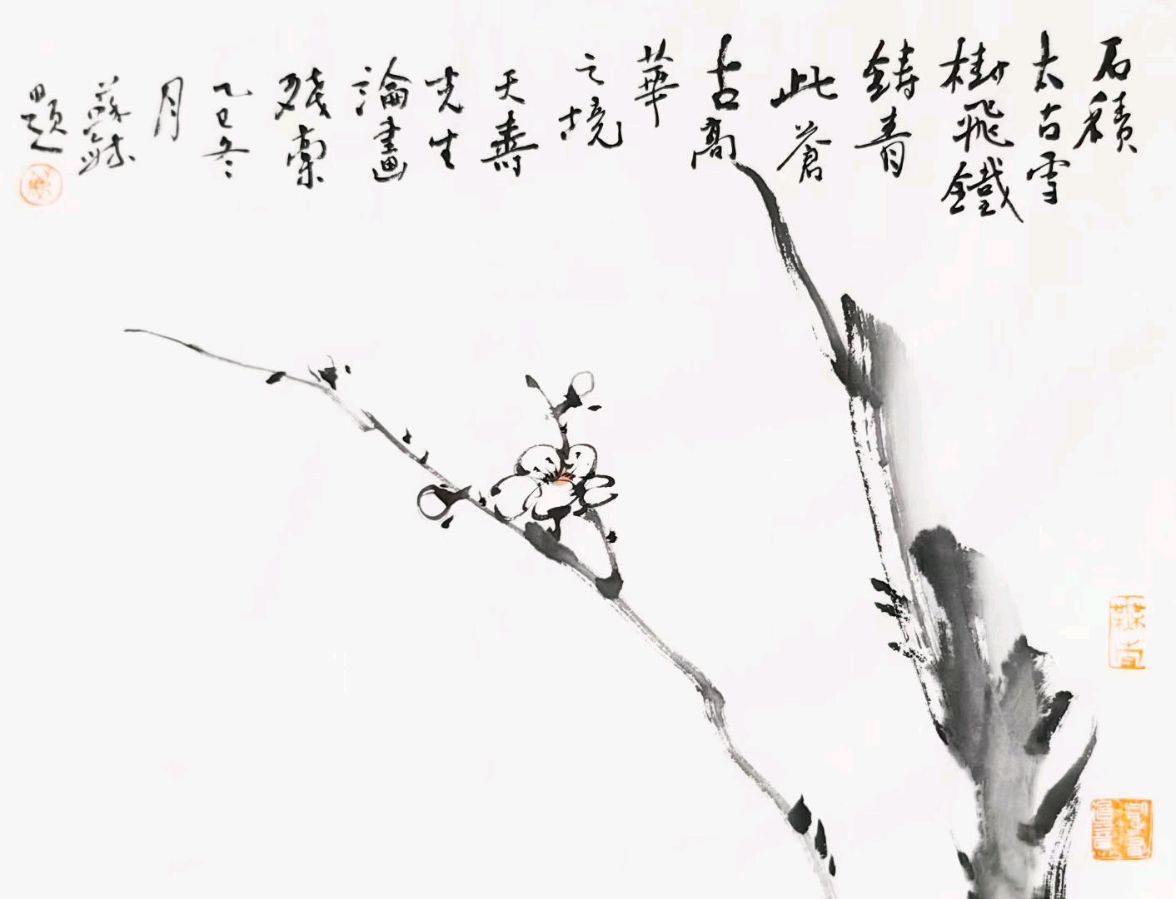 石積
太古雪
樹飛鐵
鑄青
此蒼
古高
華
之境
天壽
先生
論畫
殘稾
乙巳冬
月
題